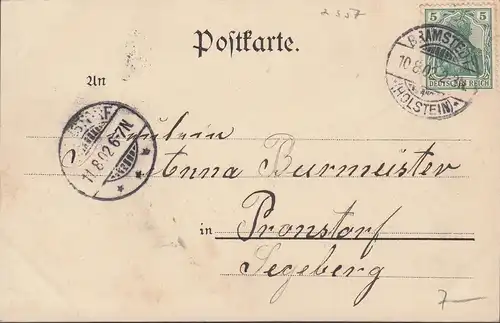 2557
Postkarte.
5 5
DEUTSCHES REICH
BRAMSTEDT
10.8.02
(HOLSTEIN)
An
11.8.02 6-7N
Fräulein
Anna Burmeister
in Pronstorf
Segeberg
7